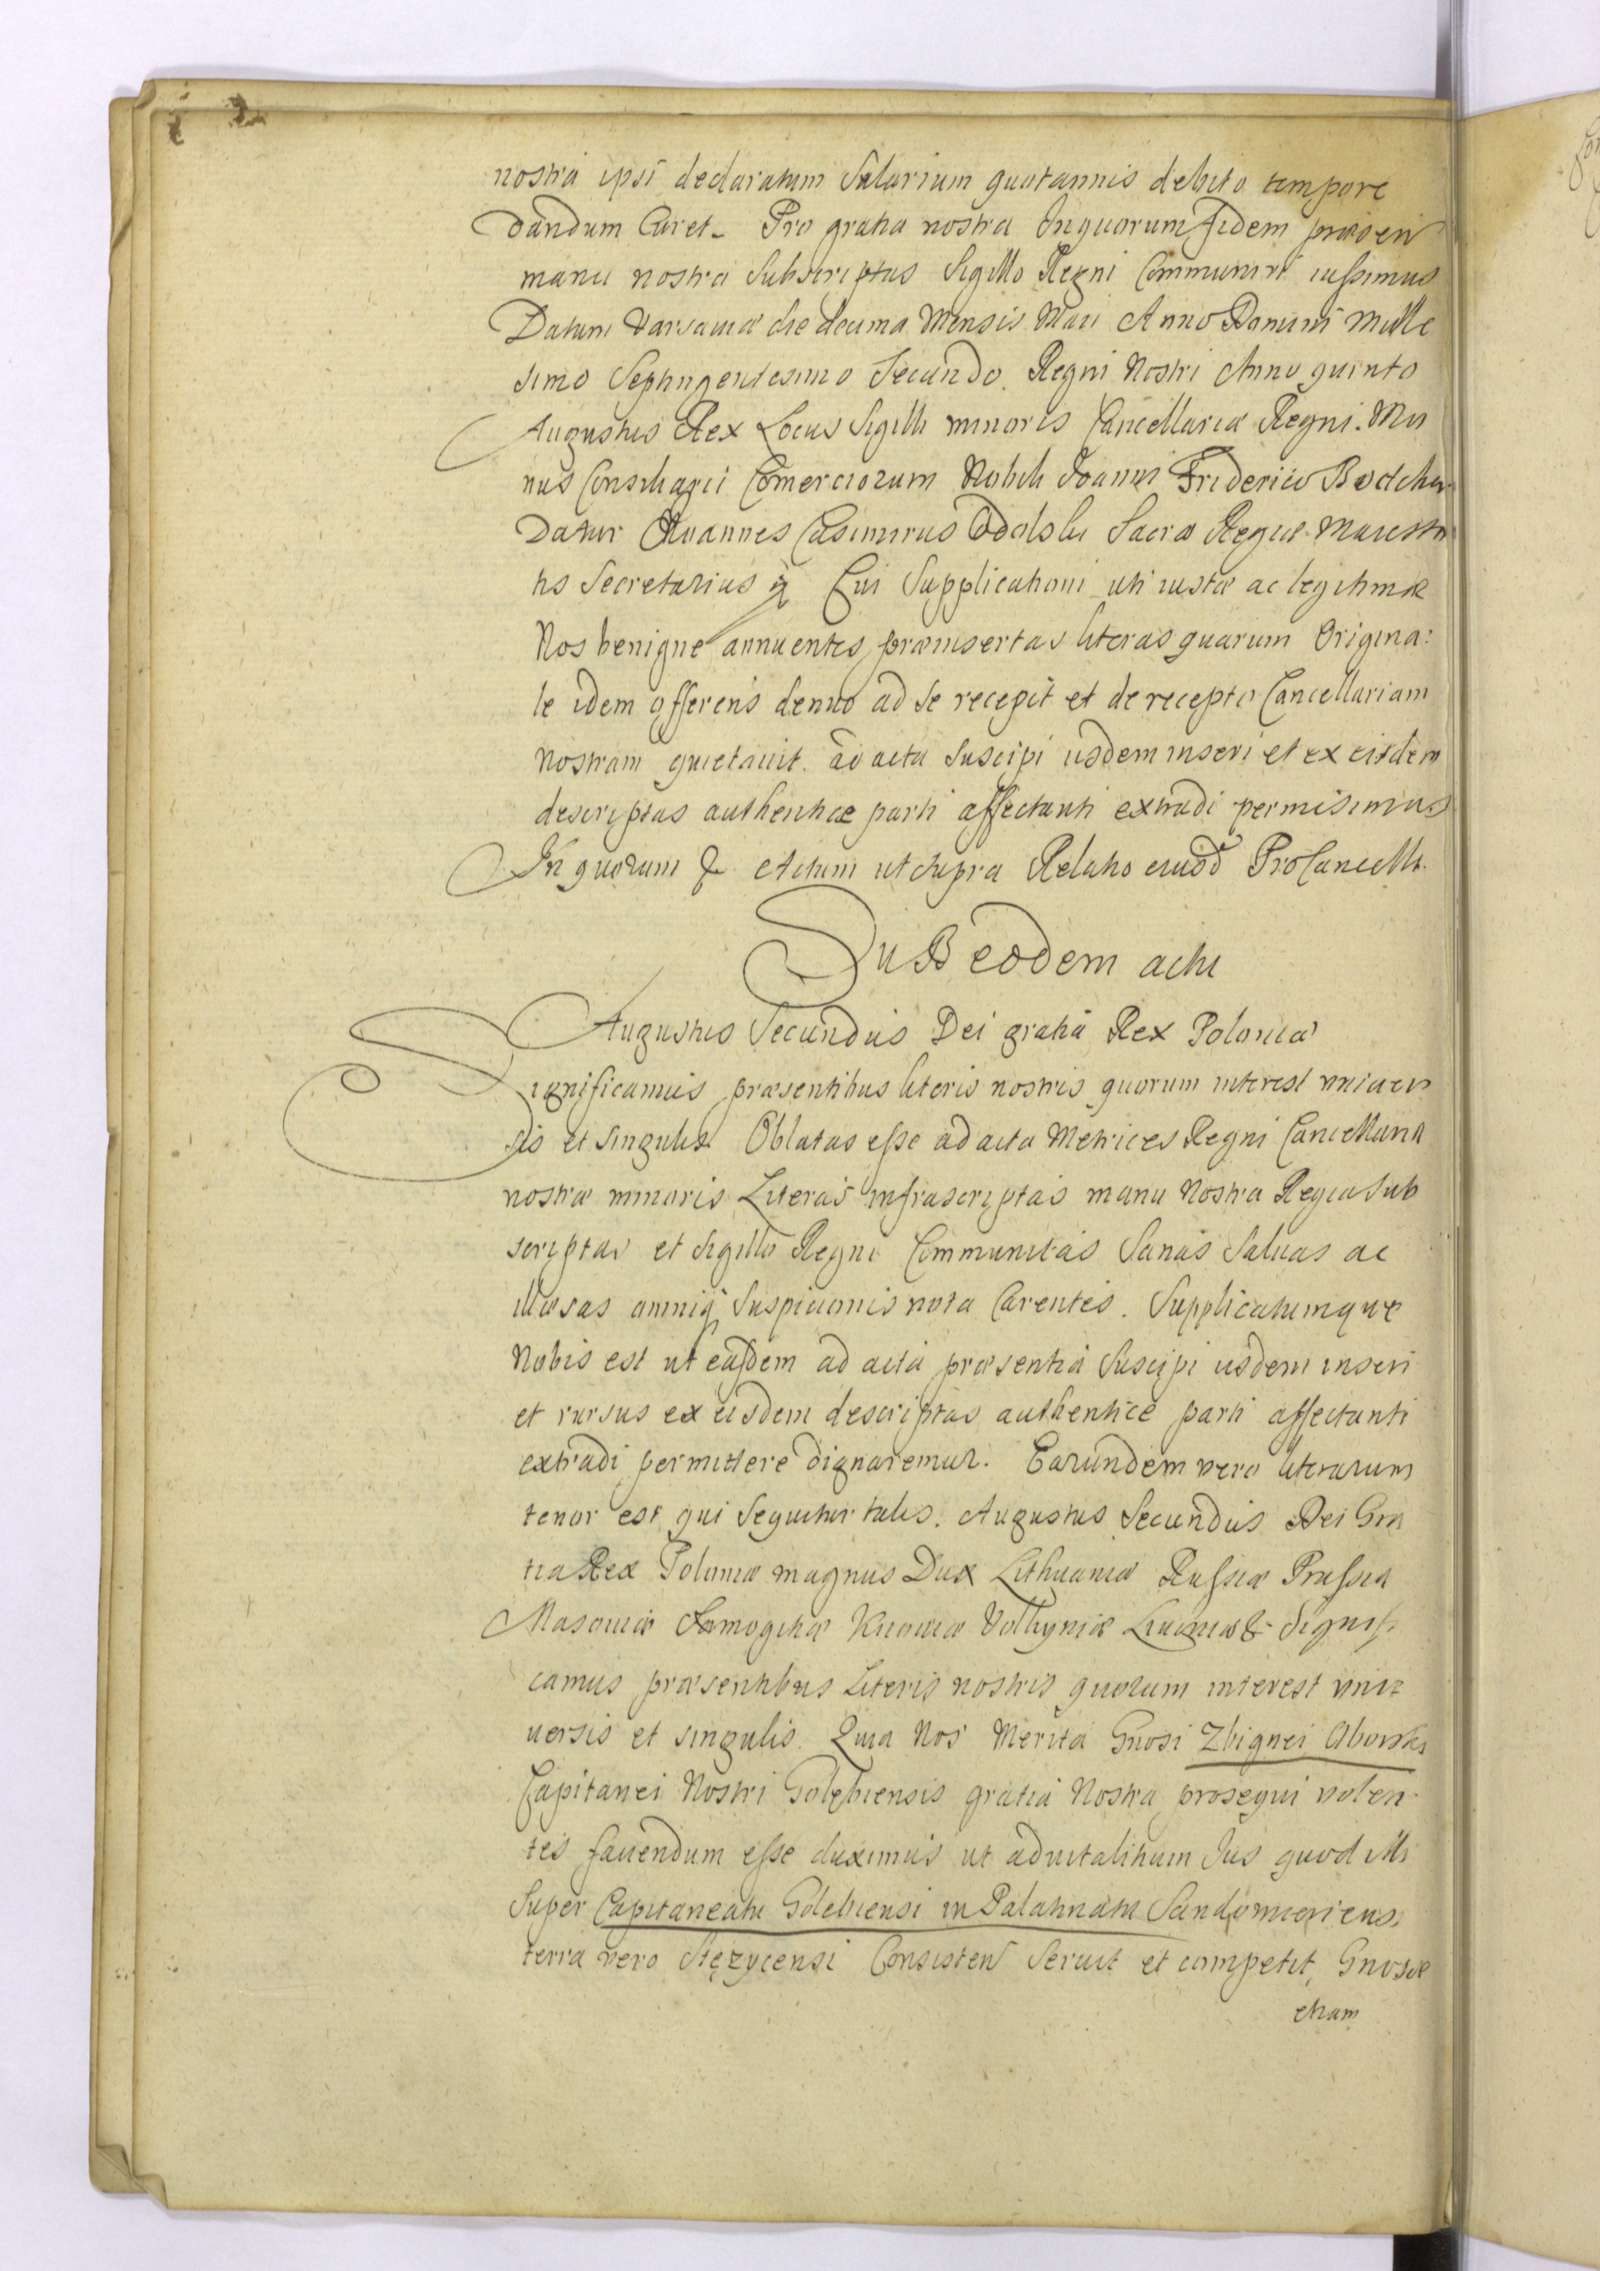 nostra ipsi declaratum Salarium quotannis debito tempore
dandum Curet. Pro gratia nostra Inquorum fidem præsen
manu nostra Subscriptas Sigillo Regni Communiri iussimus
Datum Varsaviæ die decima Mensis Maii Anno Domini Mille
simo Septingentesimo Secundo. Regni Nostri Anno quinto
Augustus Rex Locus Sigilli minoris Cancellariæ Regni. Mu
nus Consiliarii Comerciorum Nobili Joanni Friderico
Datur Joannes Casimirus Sacræ Regiæ Maiesta
tis Secretarius Cui Supplicationi uti iustæ ac legitimæ
Nos benigne annuentes præinsertas literas quarum Origina:
le idem offerens denuo ad se recepit et de recepto Cancellariam
nostram quietavit. ad acta Suscipi iisdem inseri et ex eisdem
descriptas authenticæ parti affectanti extradi permisimus
In quorum & Actum ut supra Relatio eiusd ProCancelli.
SuB eodem actu
Augustus Secundus Dei gratia Rex Poloniæ
Significamus præsentibus literis nostris quorum interest univer
sis et singulis Oblatas esse ad acta Metrices Regni Cancellariæ
nostræ minoris Literas infrascriptas manu Nostra Regia Sub
scriptas et Sigillo Regni Communitas Sanas Salvas ac
illæsas omniq Suspicionis nota Carentes. Supplicatumque
Nobis est ut easdem ad acta præsentia Suscipi iisdem inseri
et rursus ex eisdem descriptas authentice parti affectanti
extradi permittere dignaremur. Earundem vero literarum
tenor est qui Sequitur talis. Augustus Secundus Dei Gra
tia Rex Poloniæ magnus Dux Lithuaniæ Russiæ Prussiæ
Masoviæ Samogitiæ Kijoviæ Volhyniæ Livoniæ & Signifi
camus præsentibus Literis nostris quorum interest uni
versis et singulis. Quia Nos Merita Gnosi Zbignei Oborski
Capitanei Nostri Golębiensis gratia Nostra prosequi volen
tes favendum esse duximus ut advitalitium Jus quod illi
Super Capitaneatu Golebiensi in Palatinatu Sandomiriensi
terra vero Stęzycensi Consisten Servit et competit, Gnosæ
etiam